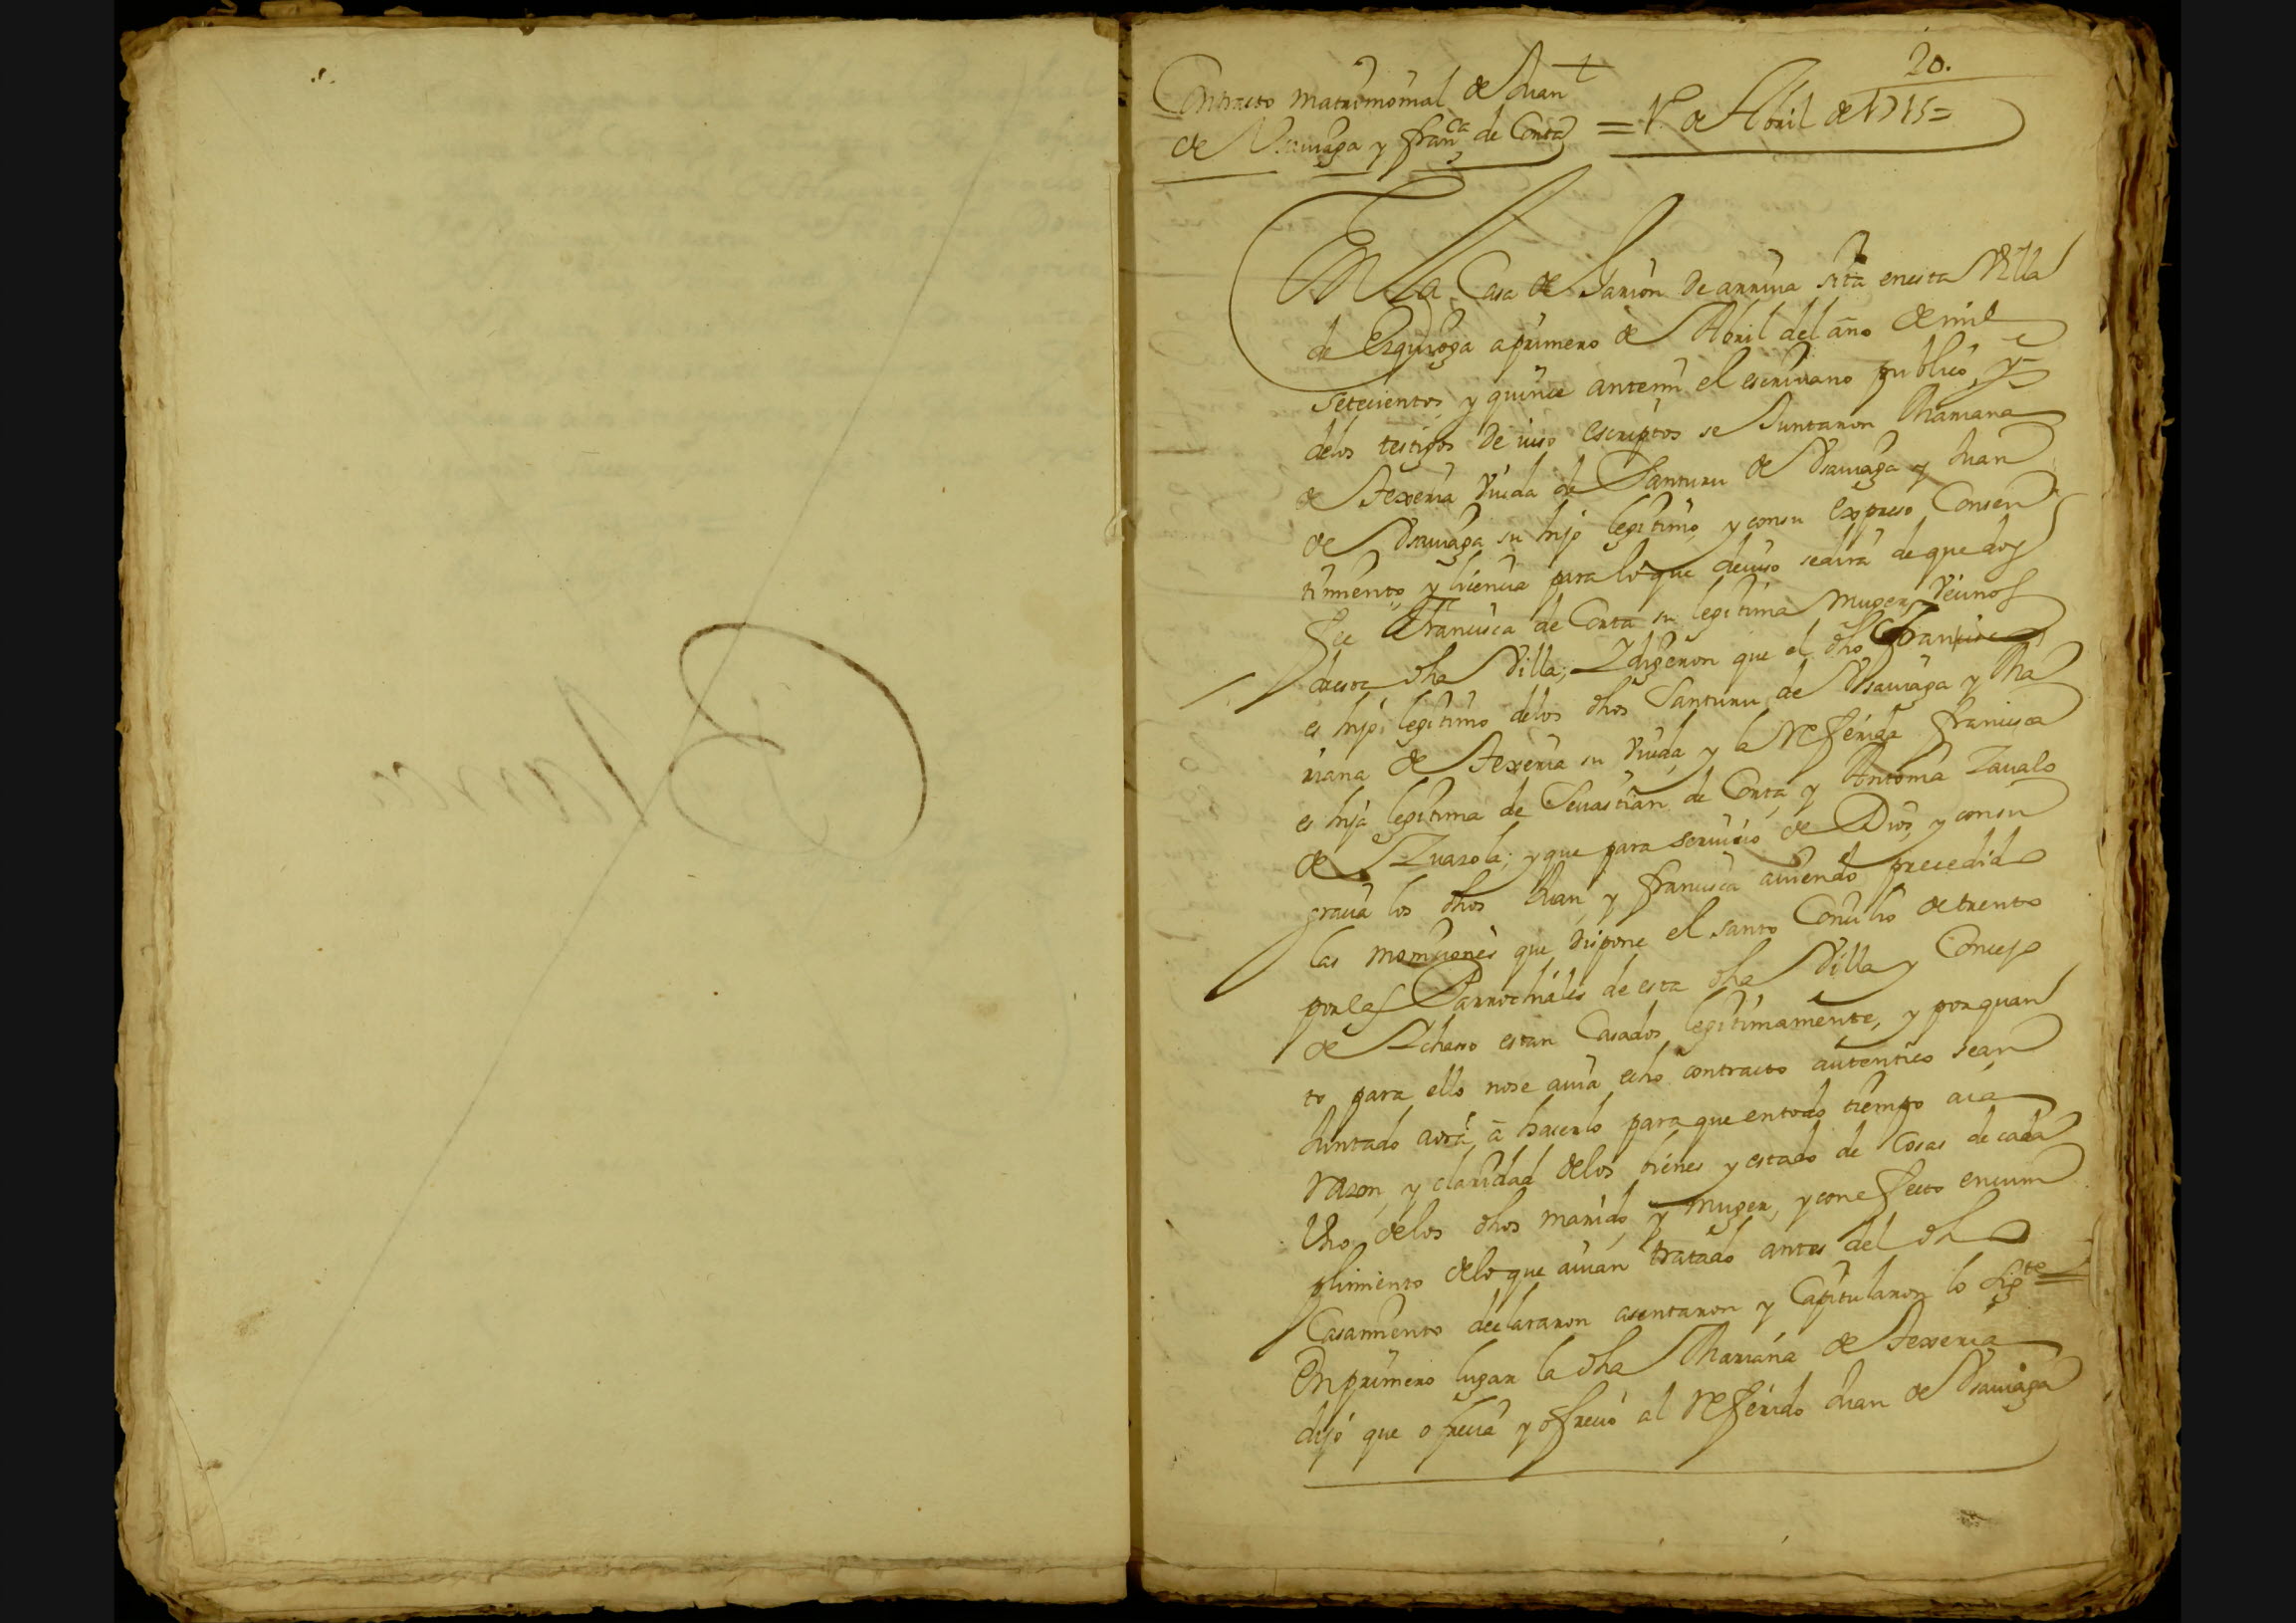 Blanca
20.
Contracto matrimonial de Juan
de Usauiaga y fran.ca de Conta = 1º de Abril de 1715=
En la Casa de Sarion de arriua sita enesta Villa
de Ezquioga a primero de Abril del año de mil
setecientos y quince antemi el escriuano publico, y
delos testigos de iuso escriptos se Juntaron Mariana
de Aexeria Viuda de Santuru de Usauiaga y Juan
de Usauiaga su hijo legitimo, y consu expreso Consen
timiento, y licencia para lo que deiuso sedira de que doy
fee Francisca de Conta su legitima muger, Vecinos
deesta dha Villa; Y dijeron que el dho Francisco
es hijo legitimo delos dhos Santuru de Usauiaga y Ma
riana de Aexeria su Viuda, y la Referida francisca
es hija legitima de Seuastian de Conta y Antonia Zaualo
de Zuazola; y que para seruicio de Dios, y consu
gracia los dhos Juan, y francisca auiendo precedido
las moniciones que dispone el santo Concilio de trento
porlas Parrochiales de esta dha Villa y Concejo
de Ychaso estan Casados legitimamente, y porquan
to para ello nose auia echo contracto autentico sean
Juntado aora, a hacerlo para que entodo tiempo aia
razon, y claridad delos bienes y estado de Cosas de cada
Uno delos dhos marido, y muger, y con effecto encum
plimiento delo que auian tratado antes del dho
Casamiento declararon asentaron y Capitularon lo sigte=
En primero lugar la dha Mariana de Aexeria
dijo que ofrecia y ofrecio al Referido Juan de Usauiaga